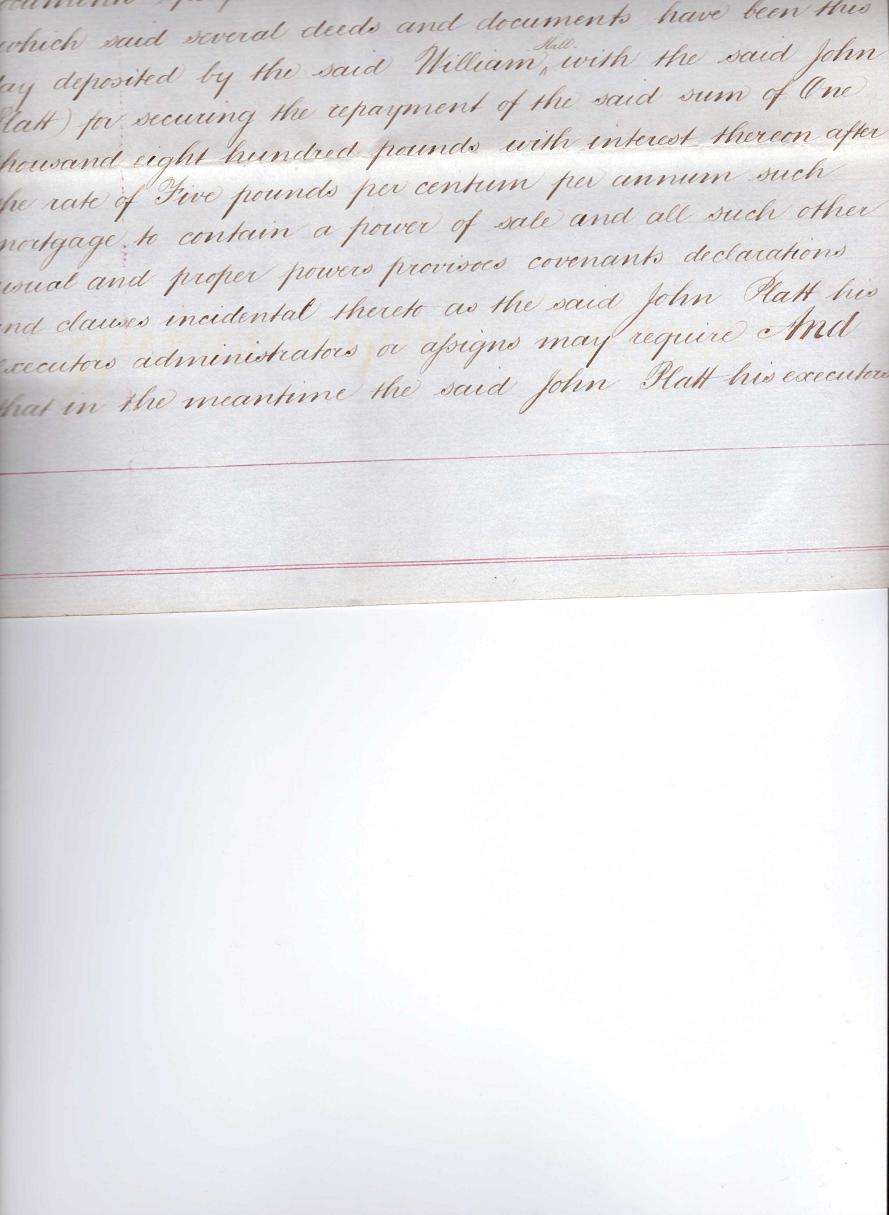 which said several deeds and documents have been this
ay deposited by the said William ^Hall with the said John
Platt) for securing the repayment of the said sum of One
housand eight hundred pounds with interest thereon after
he rate of Five pounds per centum per annum such
mortgage to contain a power of sale and all such other
usual and proper powers provisoes covenants declarations
nd clauses incidental thereto as the said John Platt his
executors administrators or assigns may require And
that in the meantime the said John Platt his executors